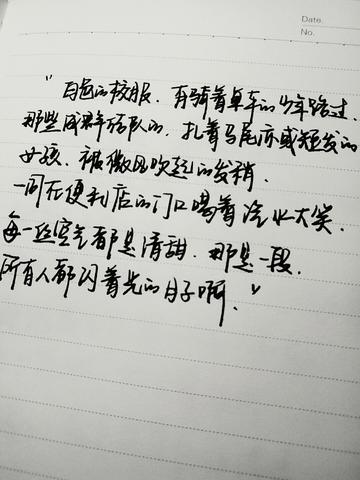 Date.
No.
"白色的校服.有骑着单车的少年路过.
那些成群结队的.扎着马尾亦或短发的
女孩.被微风吹起的发梢.
一同在便利店的门口喝着汽水大笑.
每一丝空气都是清甜.那是一段.
所有人都闪着光的日子啊."